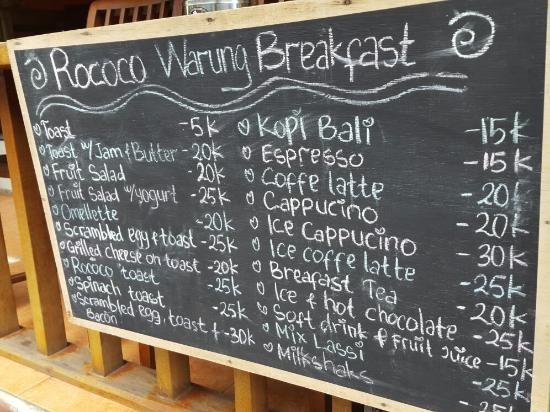 Rococo Warung Breakfast
Toast -5k
Toast w/ Jam & Butter -20k
Fruit Salad -20k
Fruit Salad w/yogurt -25k
Omellette -20k
Scrambled egg & toast -25k
Grilled cheese on toast -20k
Rococo toast -25k
Spinach toast -25k
Scrambled egg, toast & -30k
Bacon
Kopi Bali -15k
Espresso -15k
Coffe latte -20k
Cappucino -20k
Ice Cappucino -30k
Ice coffe latte -25k
Breakfast Tea -20k
Ice & hot chocolate -25k
Soft drink & Fruit Juice -15k
Mix Lassi -25k
Milkshaks -25k